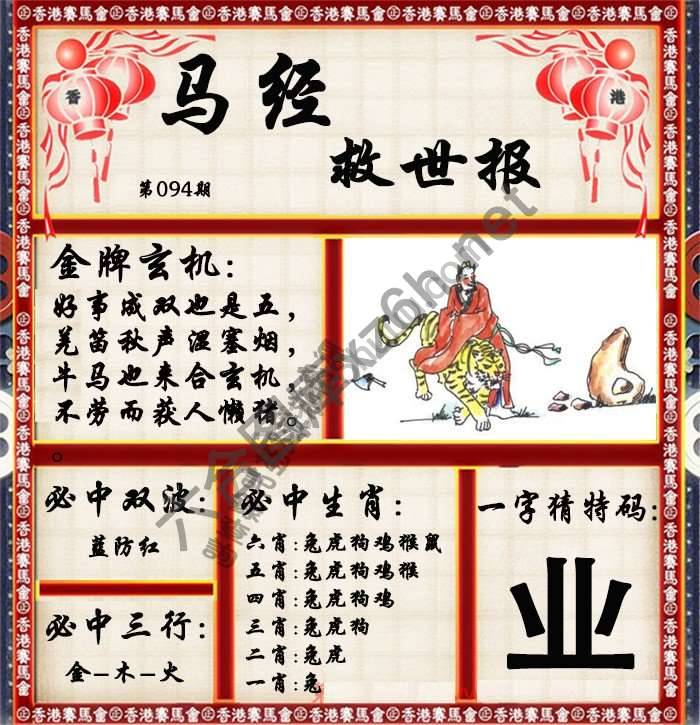 香港賽馬會
香
港
马经
救世报
第094期
金牌玄机:
好事成双也是五,
羌笛秋声湿塞烟,
牛马也来合玄机,
不劳而获人懒猪。
必中双波:
蓝防红
必中三行:
金-木-火
必中生肖:
六肖:兔虎狗鸡猴鼠
五肖:兔虎狗鸡猴
四肖:兔虎狗鸡
三肖:兔虎狗
二肖:兔虎
一肖:兔
一字猜特码:
业